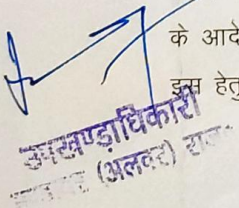 के आदे
इस हेतु
उपखण्डाधिकारी
(अलवर) राज